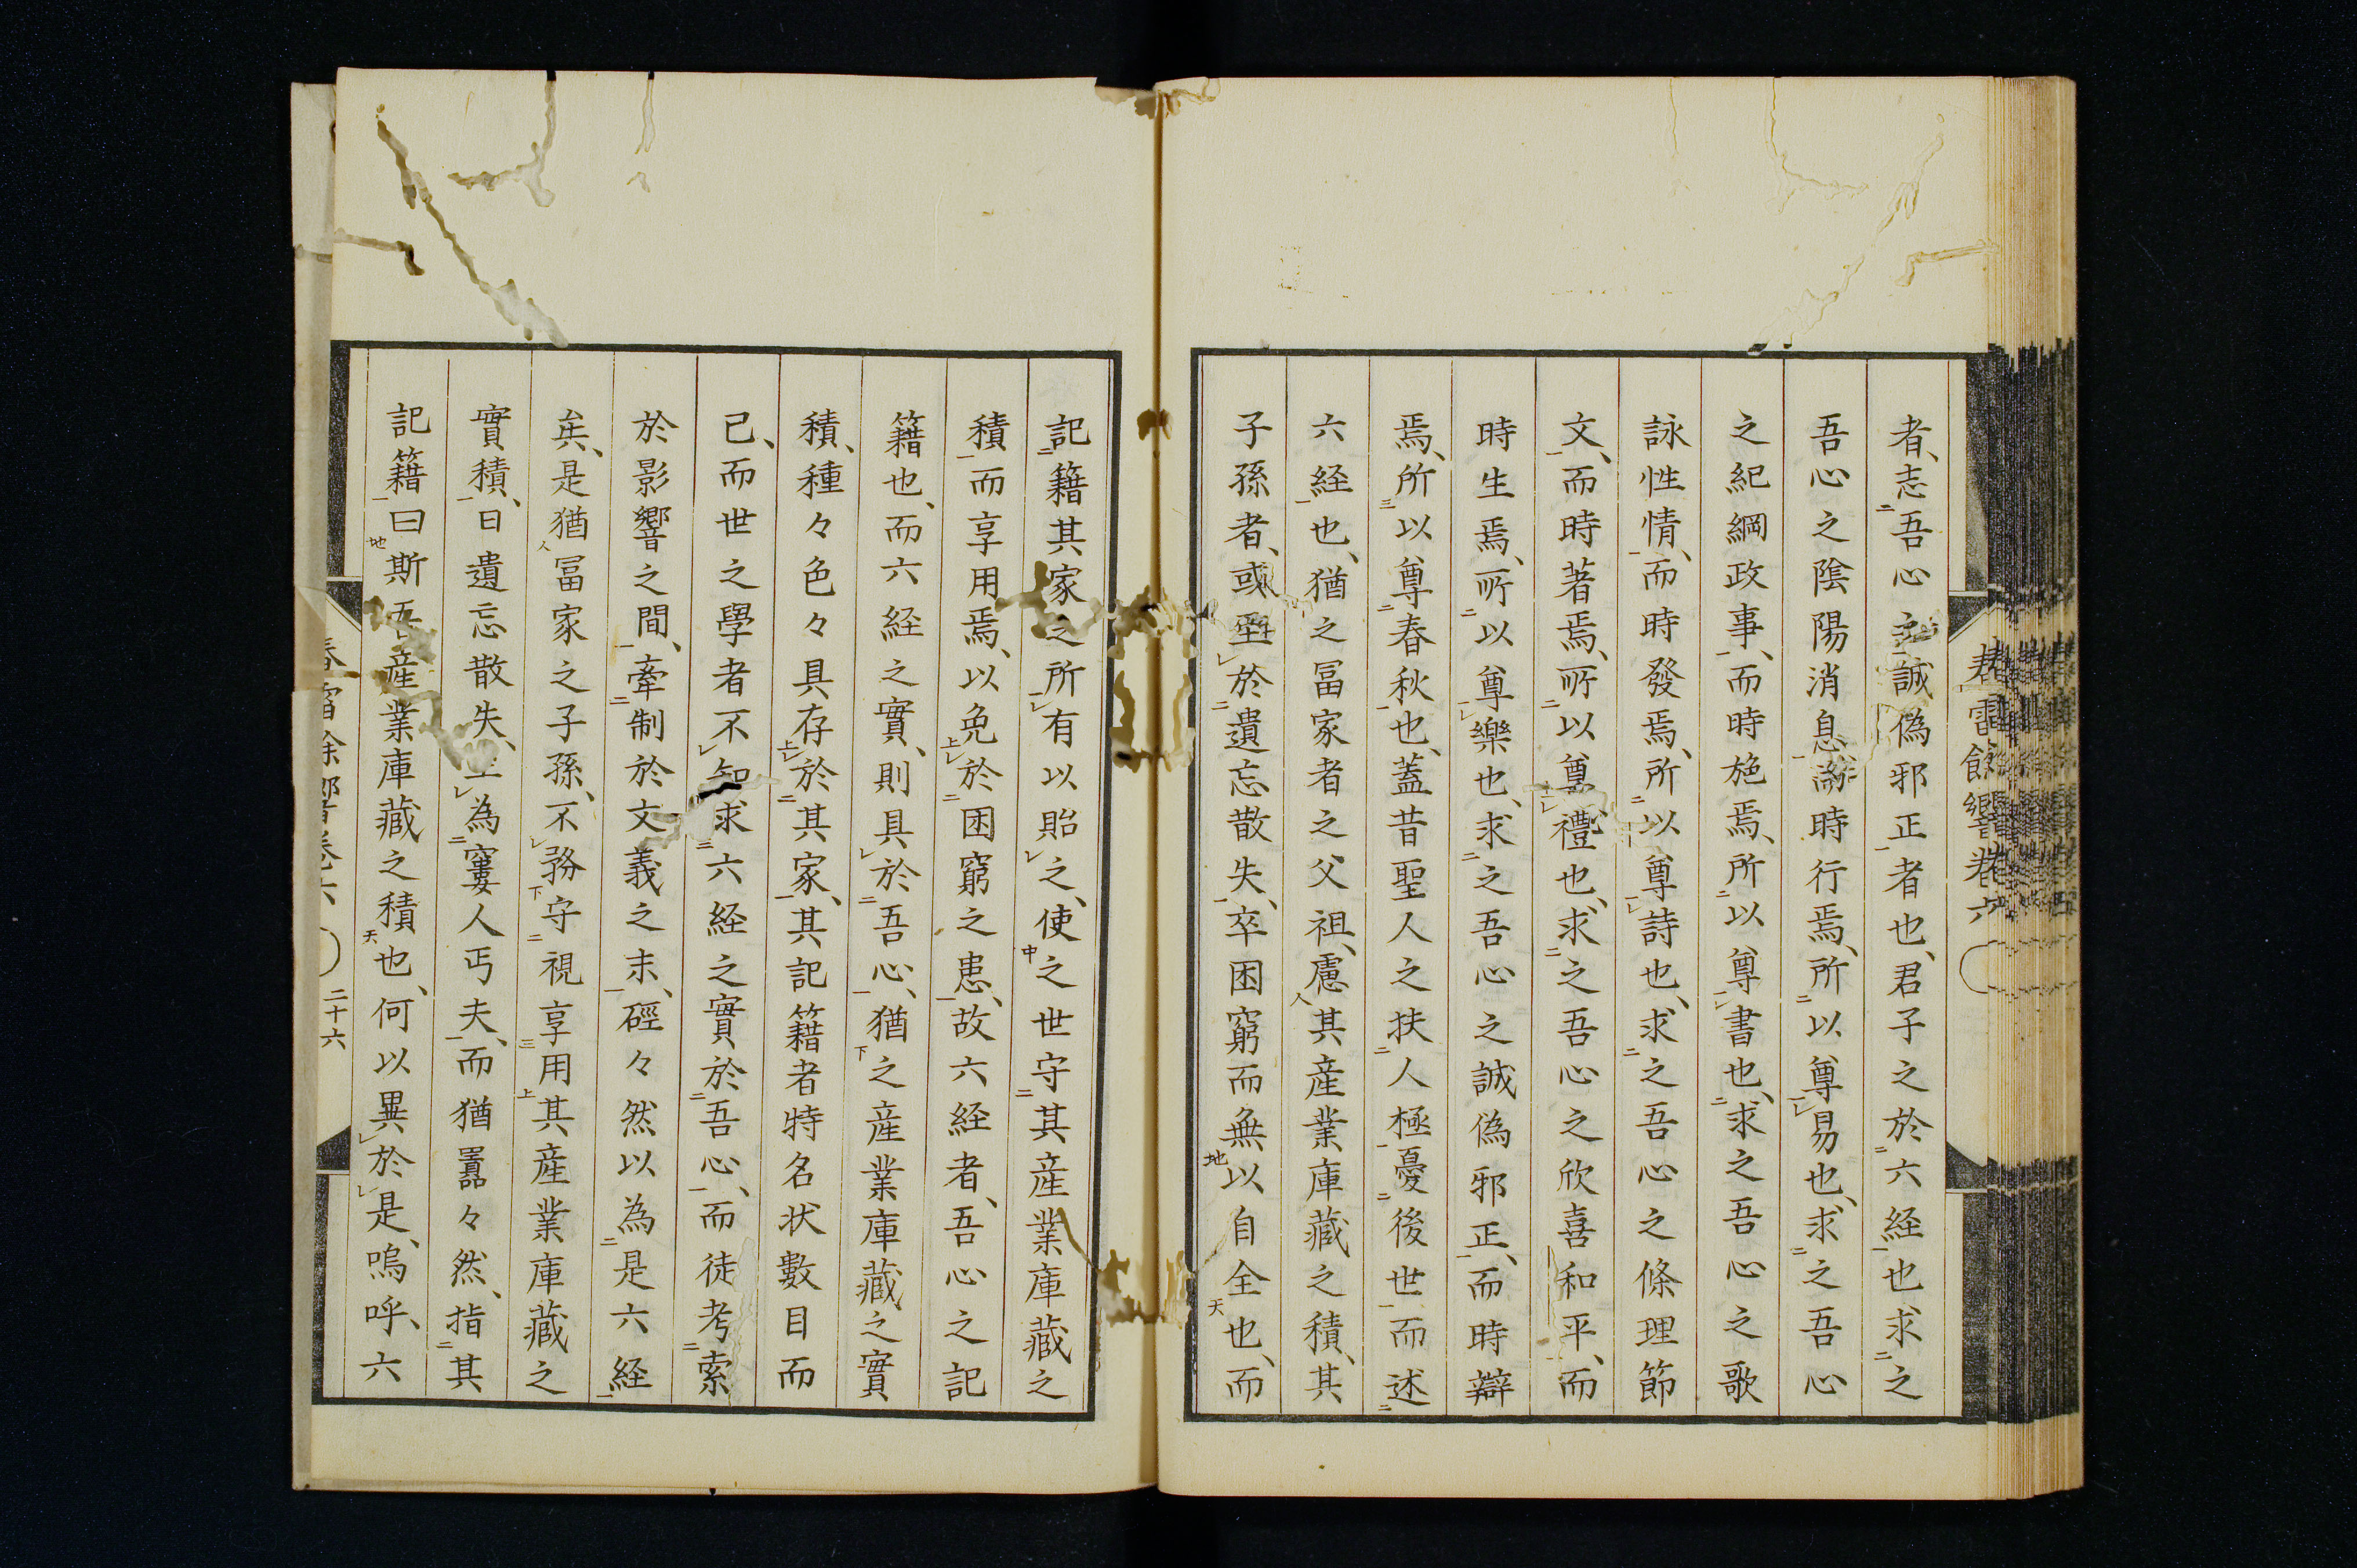 者、志吾心之誠偽邪正者也、君子之於六経也求之
吾心之陰陽消息而時行焉、所以尊易也、求之吾心
之紀綱政事、而時施焉、所以尊書也、求之吾心之歌
詠性情、而時發焉、所以尊詩也、求之吾心之條理節
文、而時著焉、所以尊禮也、求之吾心之欣喜和平、而
時生焉、所以尊樂也、求之吾心之誠偽邪正、而時辯
焉、所以尊春秋也、蓋昔聖人之扶人極憂後世而述
六経也、猶之冨家者之父祖、慮其産業庫藏之積、其
子孫者、或至於遺忘散失、卒困窮而無以自全也、而
記籍其家之所有以貽之、使之世守其産業庫藏之
積而享用焉、以免於困窮之患、故六経者、吾心之記
籍也、而六経之實、則具於吾心、猶之産業庫藏之實
積、種々色々具存於其家、其記籍者特名状數目而
已、而世之學者不知求六経之實於吾心、而徒考索
於影響之間、牽制於文義之末、硜々然以為是六経
矣、是猶冨家之子孫、不務守視享用其産業庫藏之
實積、日遺忘散失、至為窶人丐夫、而猶囂々然、指其
記籍曰斯吾産業庫藏之積也、何以異於是、嗚呼、六
二十六